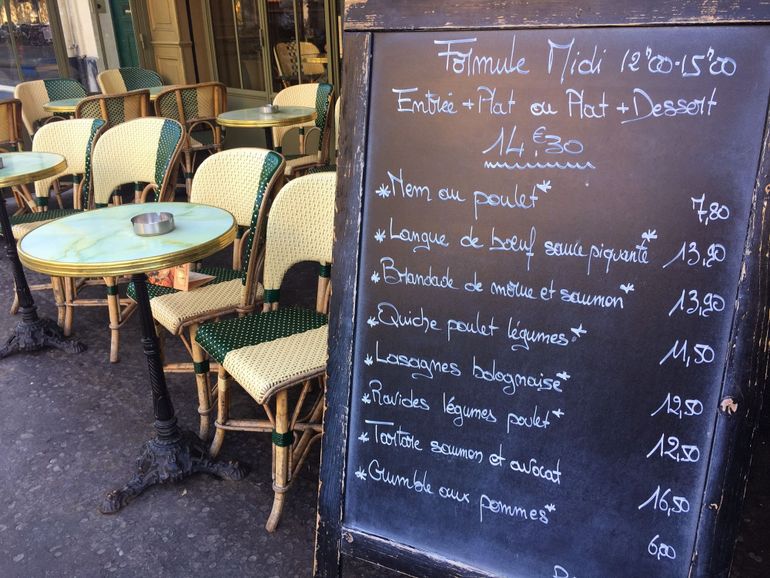 Formule Midi 12h00-15h00
Entrée + Plat ou Plat + Dessert
14,€30
*Nem au poulet* 7,80
*Langue de bœuf sauce piquante* 13,90
*Brandade de morue et saumon* 13,90
*Quiche poulet légumes* 11,50
*Lasagnes bolognaise* 12,50
*Ravioles légumes poulet* 12,50
*Tartare saumon et avocat 16,50
*Crumble aux pommes* 6,00